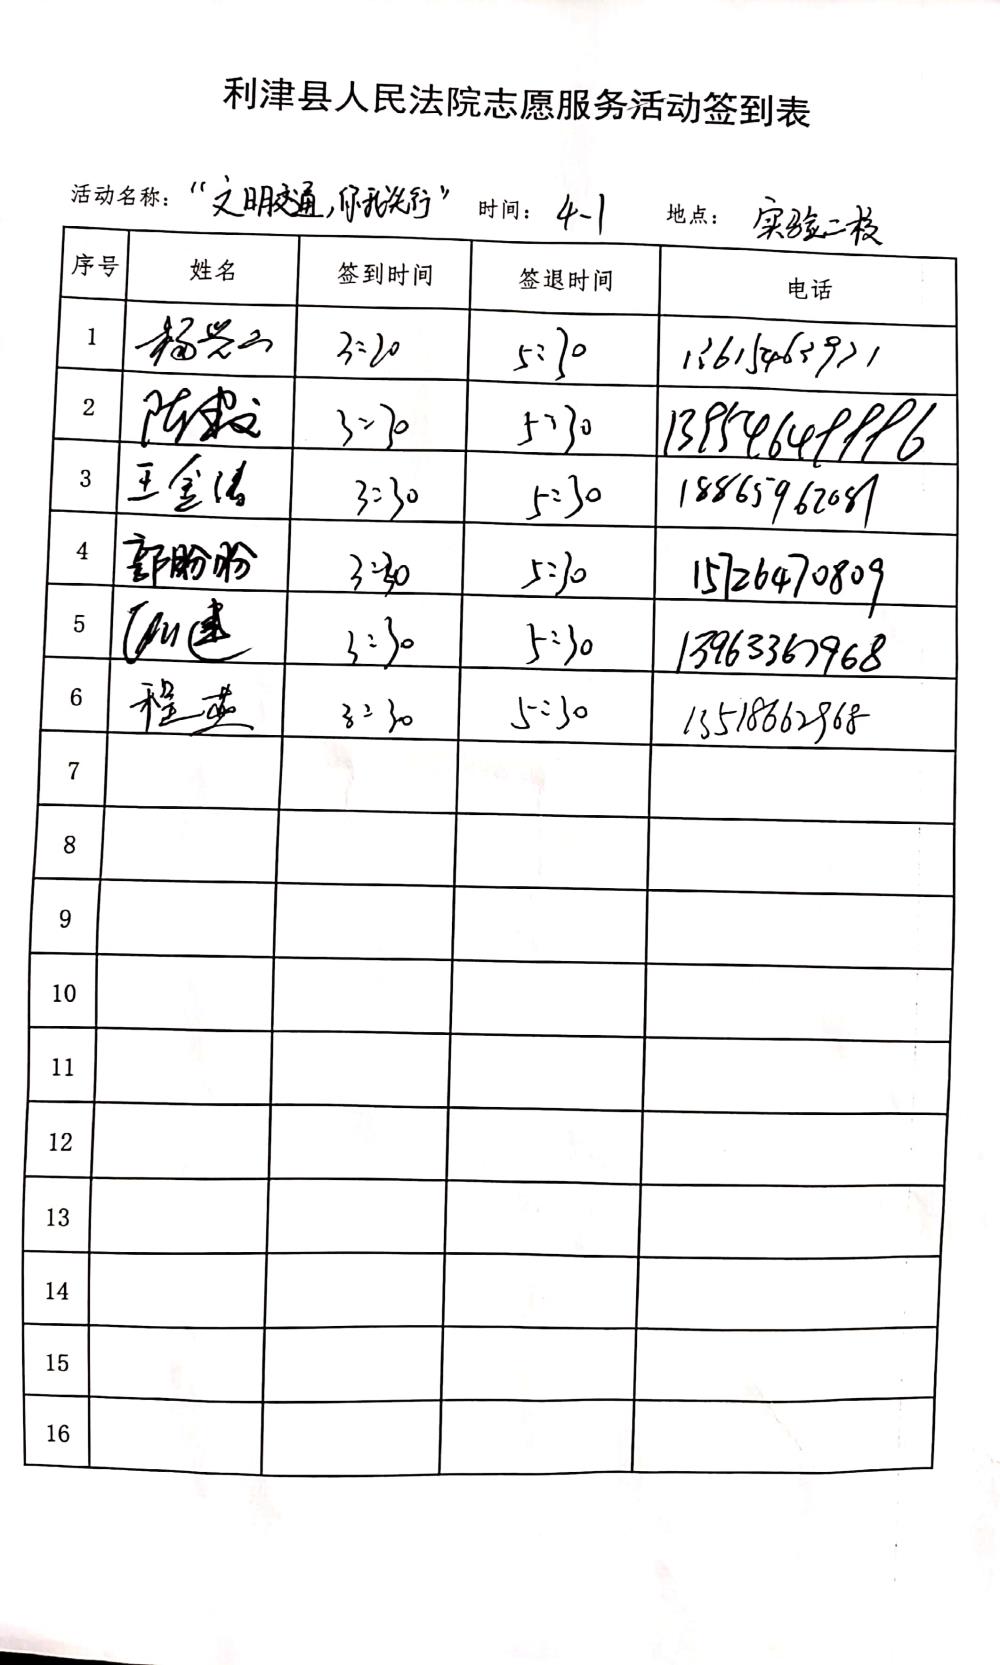 利津县人民法院志愿服务活动签到表
活动名称："文明交通,你我先行" 时间：4-1 地点：实验二校
序号 姓名 签到时间 签退时间 电话
1 3:30 5:30 13615463921
2 陈建文 3:30 5:30
3 王金涛 3:30 5:30 18865962081
4 郭盼盼 3:30 5:30 15726470809
5 3:30 5:30 13963367968
6 程燕 3:30 5:30 13518662968
7
8
9
10
11
12
13
14
15
16